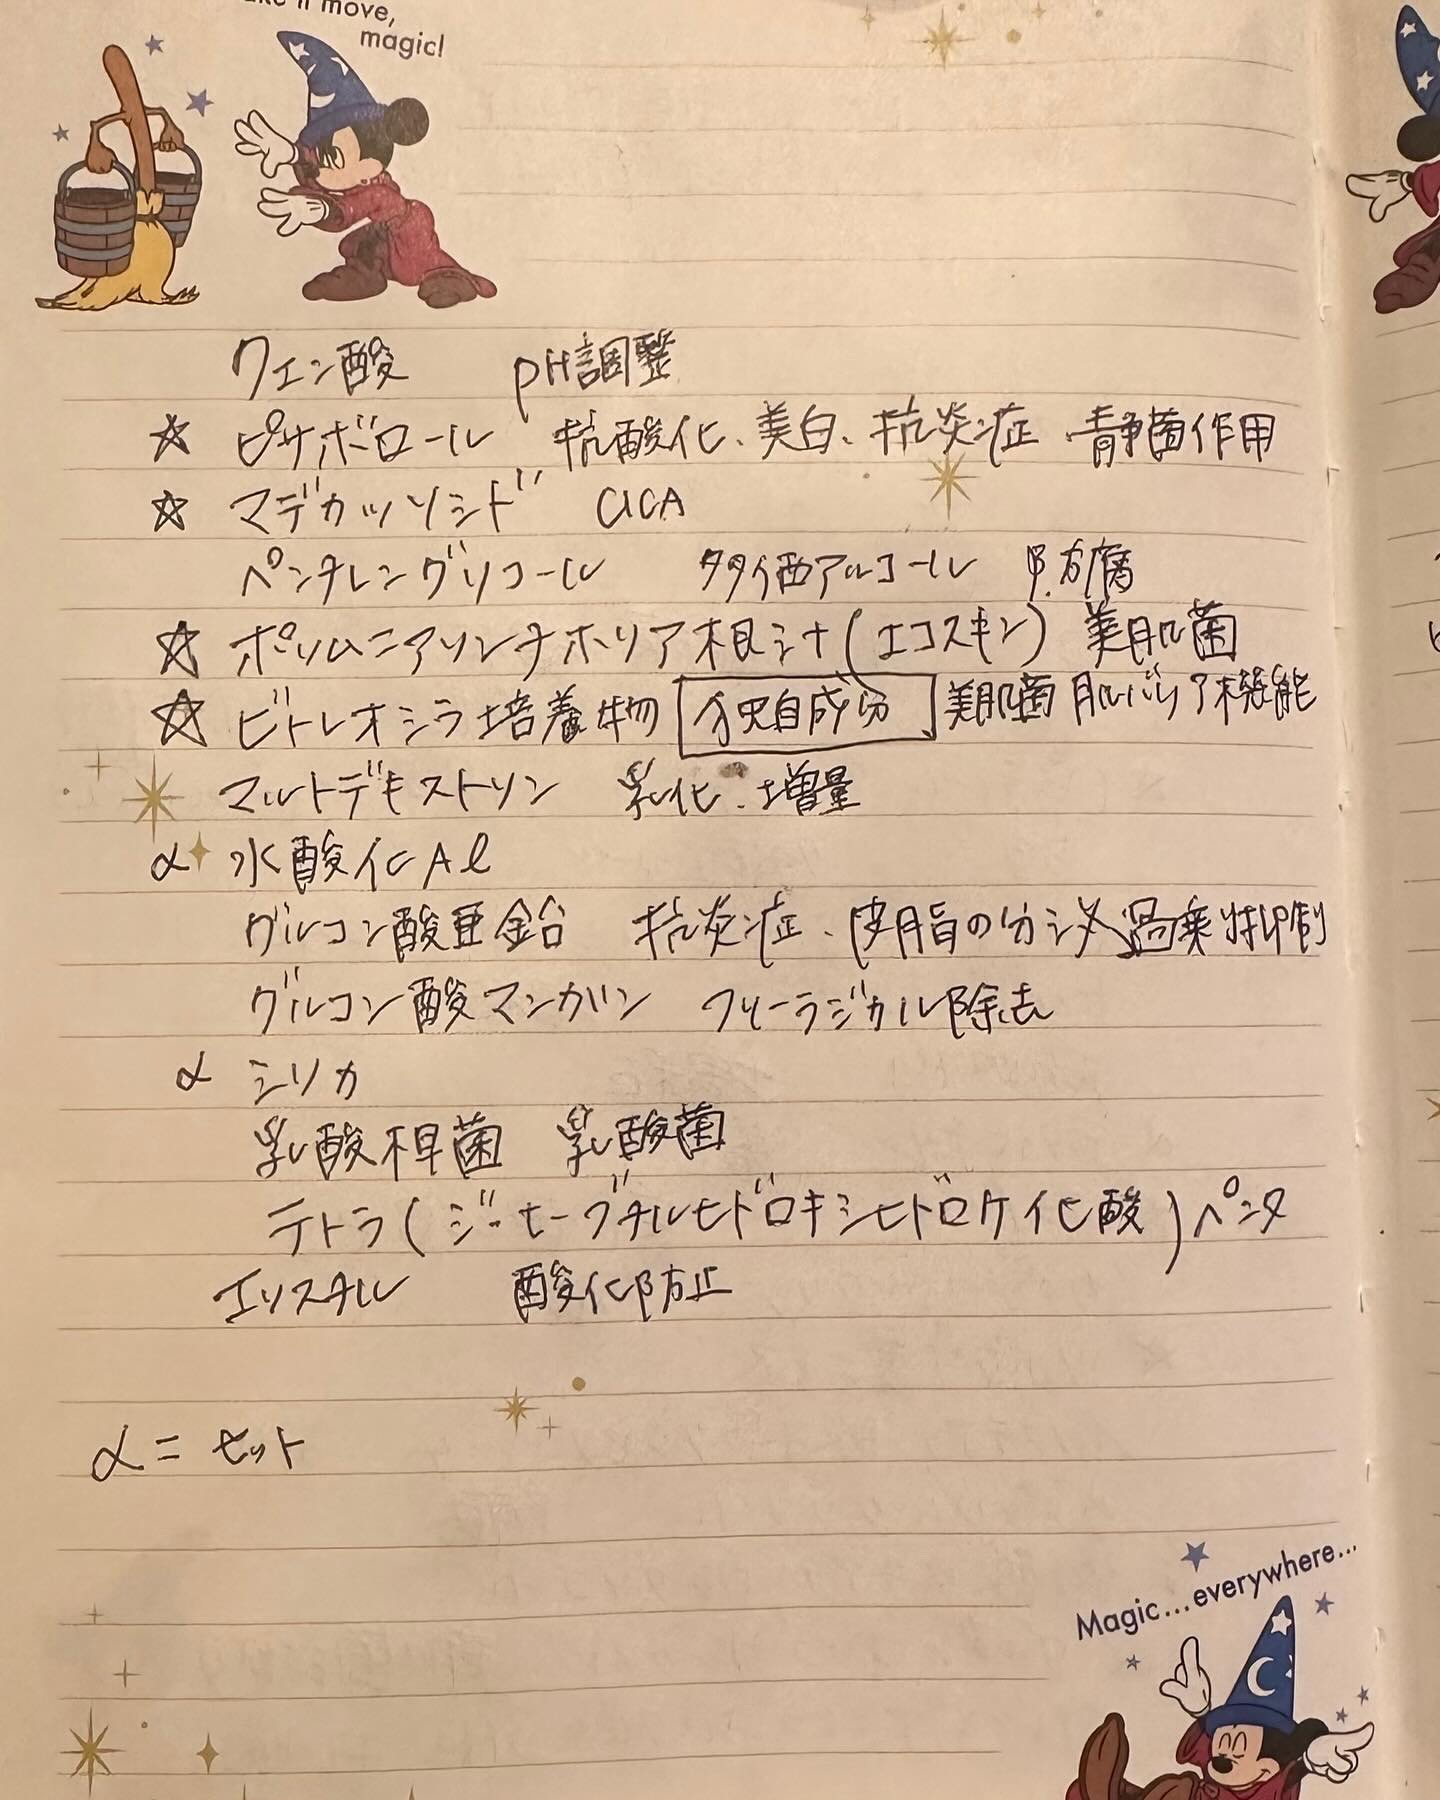 magic!
クエン酸 pH調整
☆ ビサボロール 抗酸化、美白、抗炎症 静菌作用
☆ マデカッソシド CICA
ペンチレングリコール 多価アルコール 防腐
☆ ポリムニアソンチホリア根汁(エコスキン) 美肌菌
☆ ビトレオシラ培養物 独自成分 美肌菌 肌バリア機能
マルトデキストリン 乳化、増量
α 水酸化Al
グルコン酸亜鉛 抗炎症、皮脂の分泌過乗抑制
グルコン酸マンガン フリーラジカル除去
α シリカ
乳酸桿菌 乳酸菌
テトラ(ジ-t-ブチルヒドロキシヒドロケイ化酸)ペンタ
エリスチル 酸化防止
α=セット
Magic...everywhere...